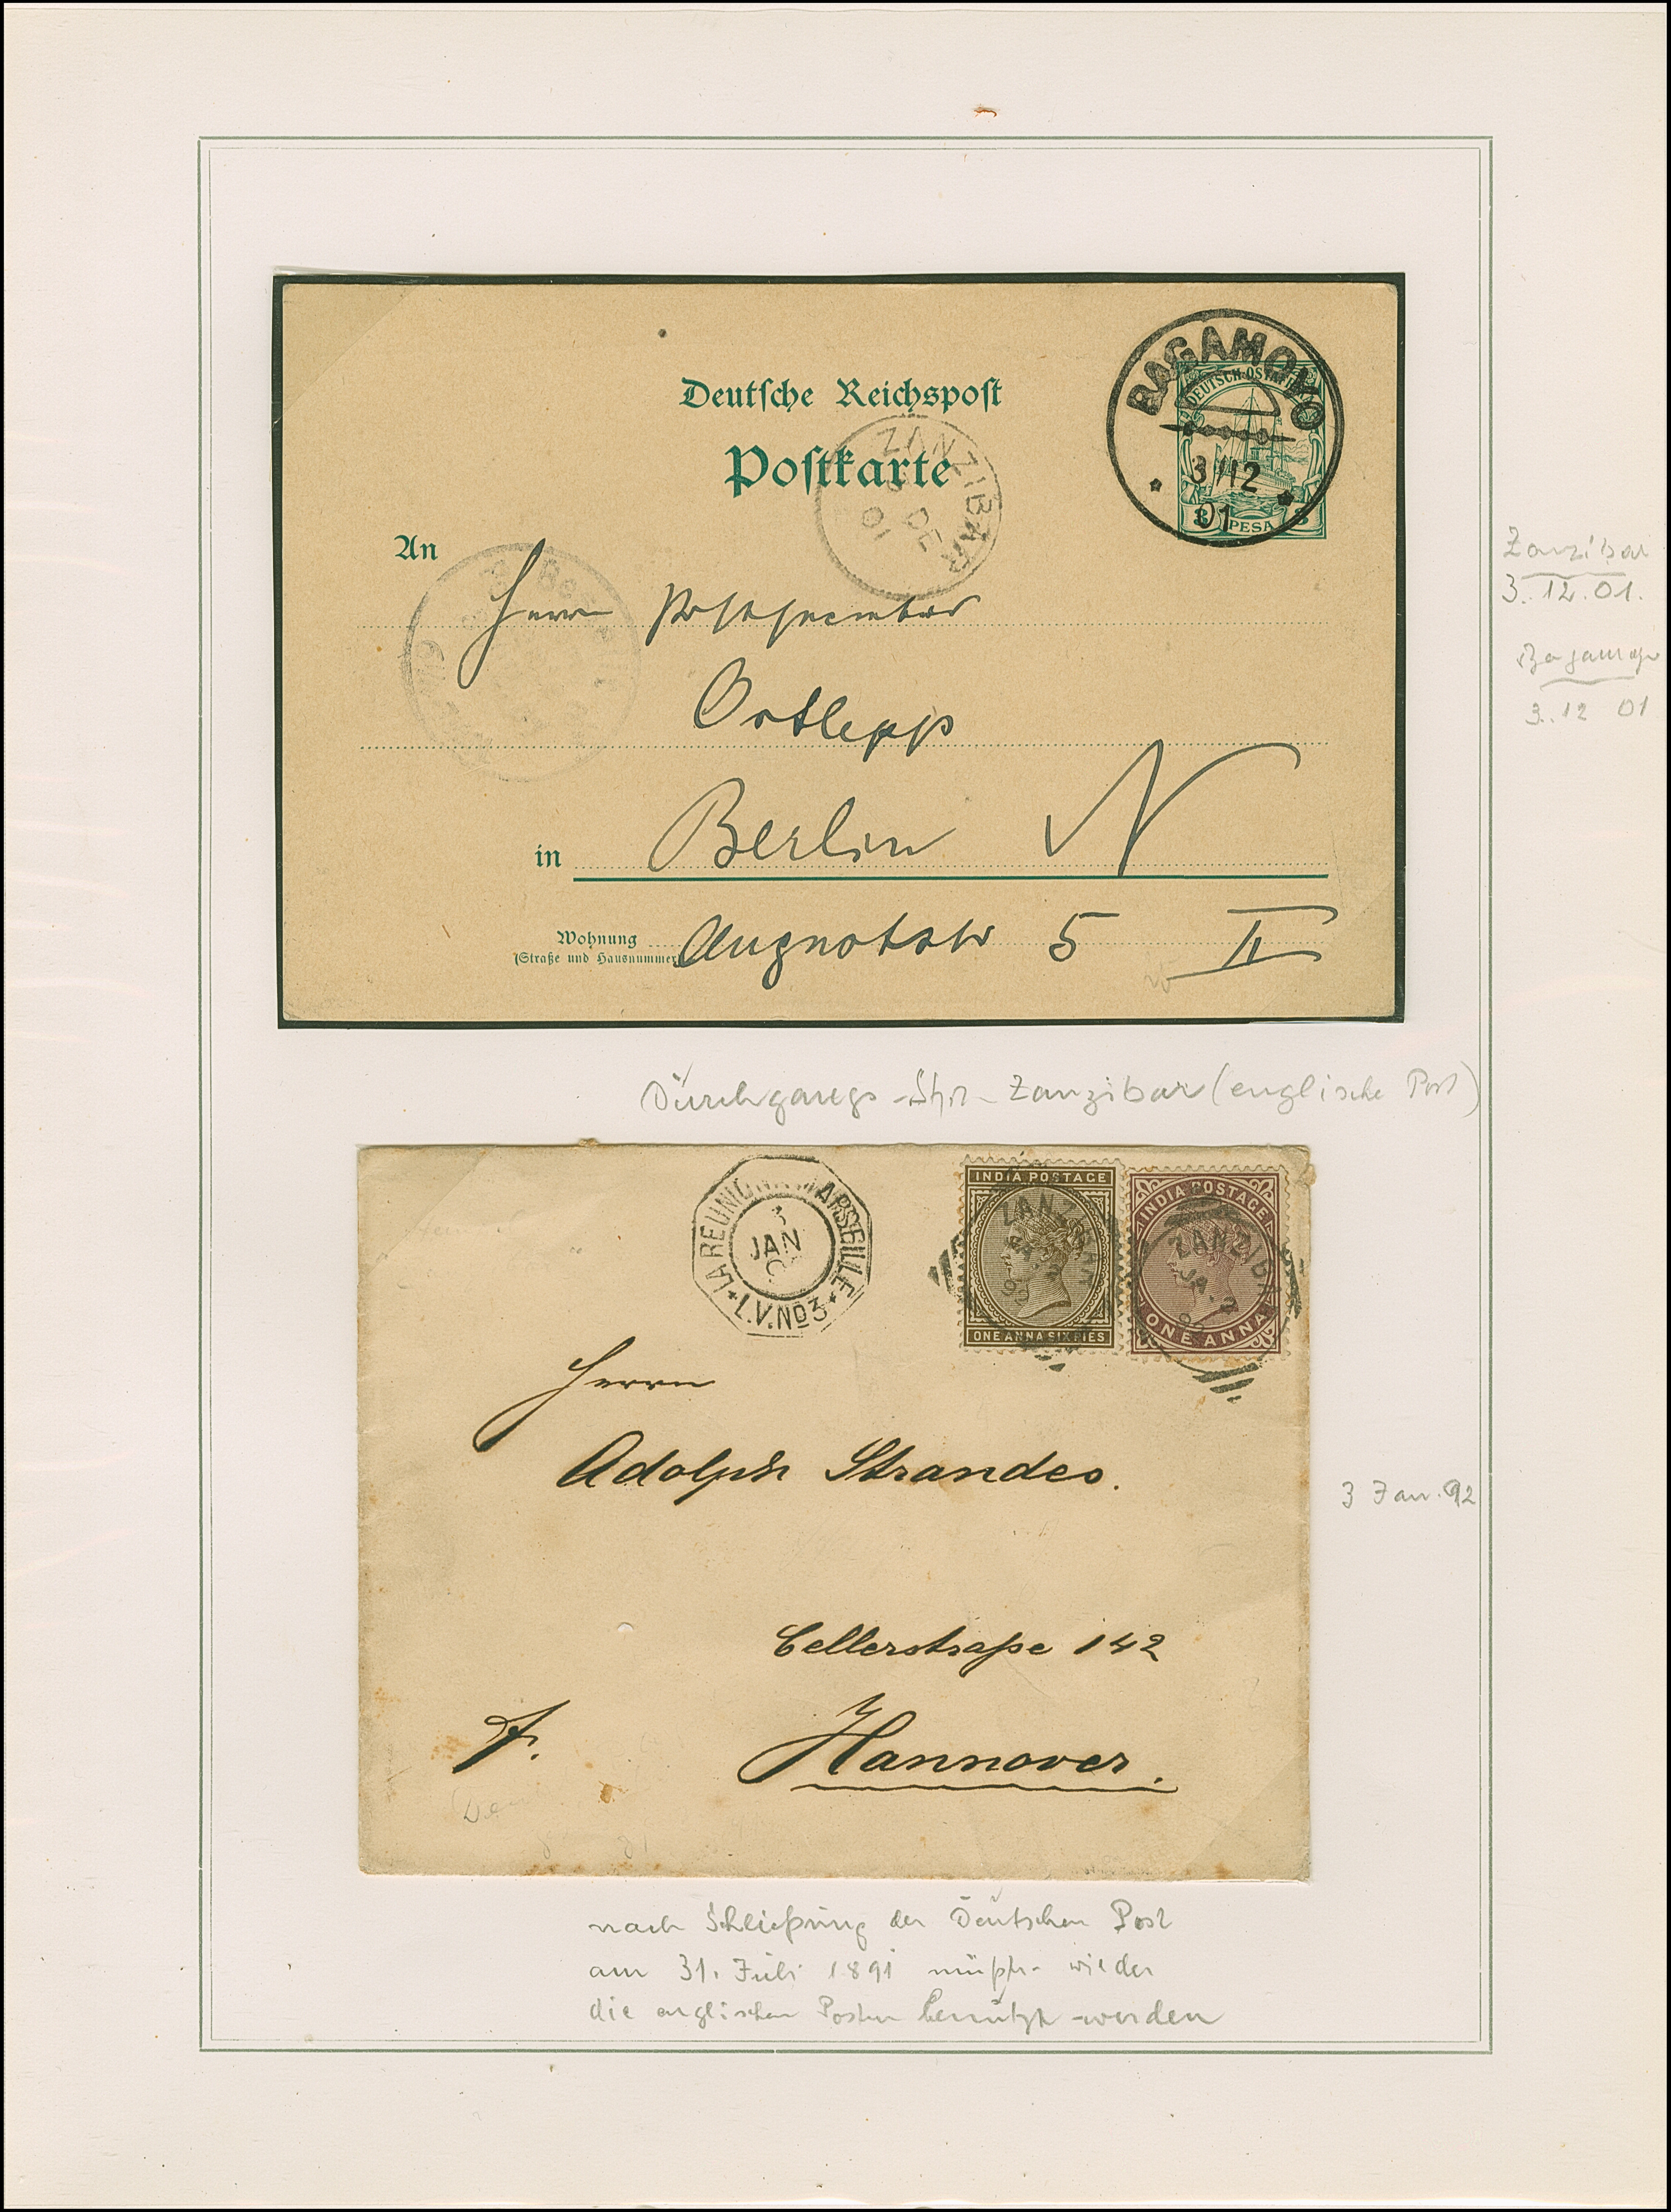 Deutsche Reichspost
Postkarte
BAGAMOYO
3/12
01
DEUTSCH-OSTAFRIKA
3 PESA 3
ZANZIBAR
DE
01
An
Herrn Postsekretär
Ortlepp
in Berlin N
Wohnung Auguststr 5 II
(Straße und Hausnummer)
Zanzibar
3.12.01.
Bagamoyo
3.12 01
Durchgangs-Stp.- Zanzibar (englische Post)
LA REUNION A MARSEILLE
3
JAN
L.V.No3
INDIA POSTAGE
ONE ANNA SIX PIES
INDIA POSTAGE
ONE ANNA
ZANZIBAR
JA 3
92
ZANZIBAR
JA 3
92
Herrn
Adolph Strandes.
3 Jan. 92
Cellerstraße 142
Hannover.
nach Schließung der Deutschen Post
am 31. Juli 1891 mußte wieder
die englischen Posten benützt werden